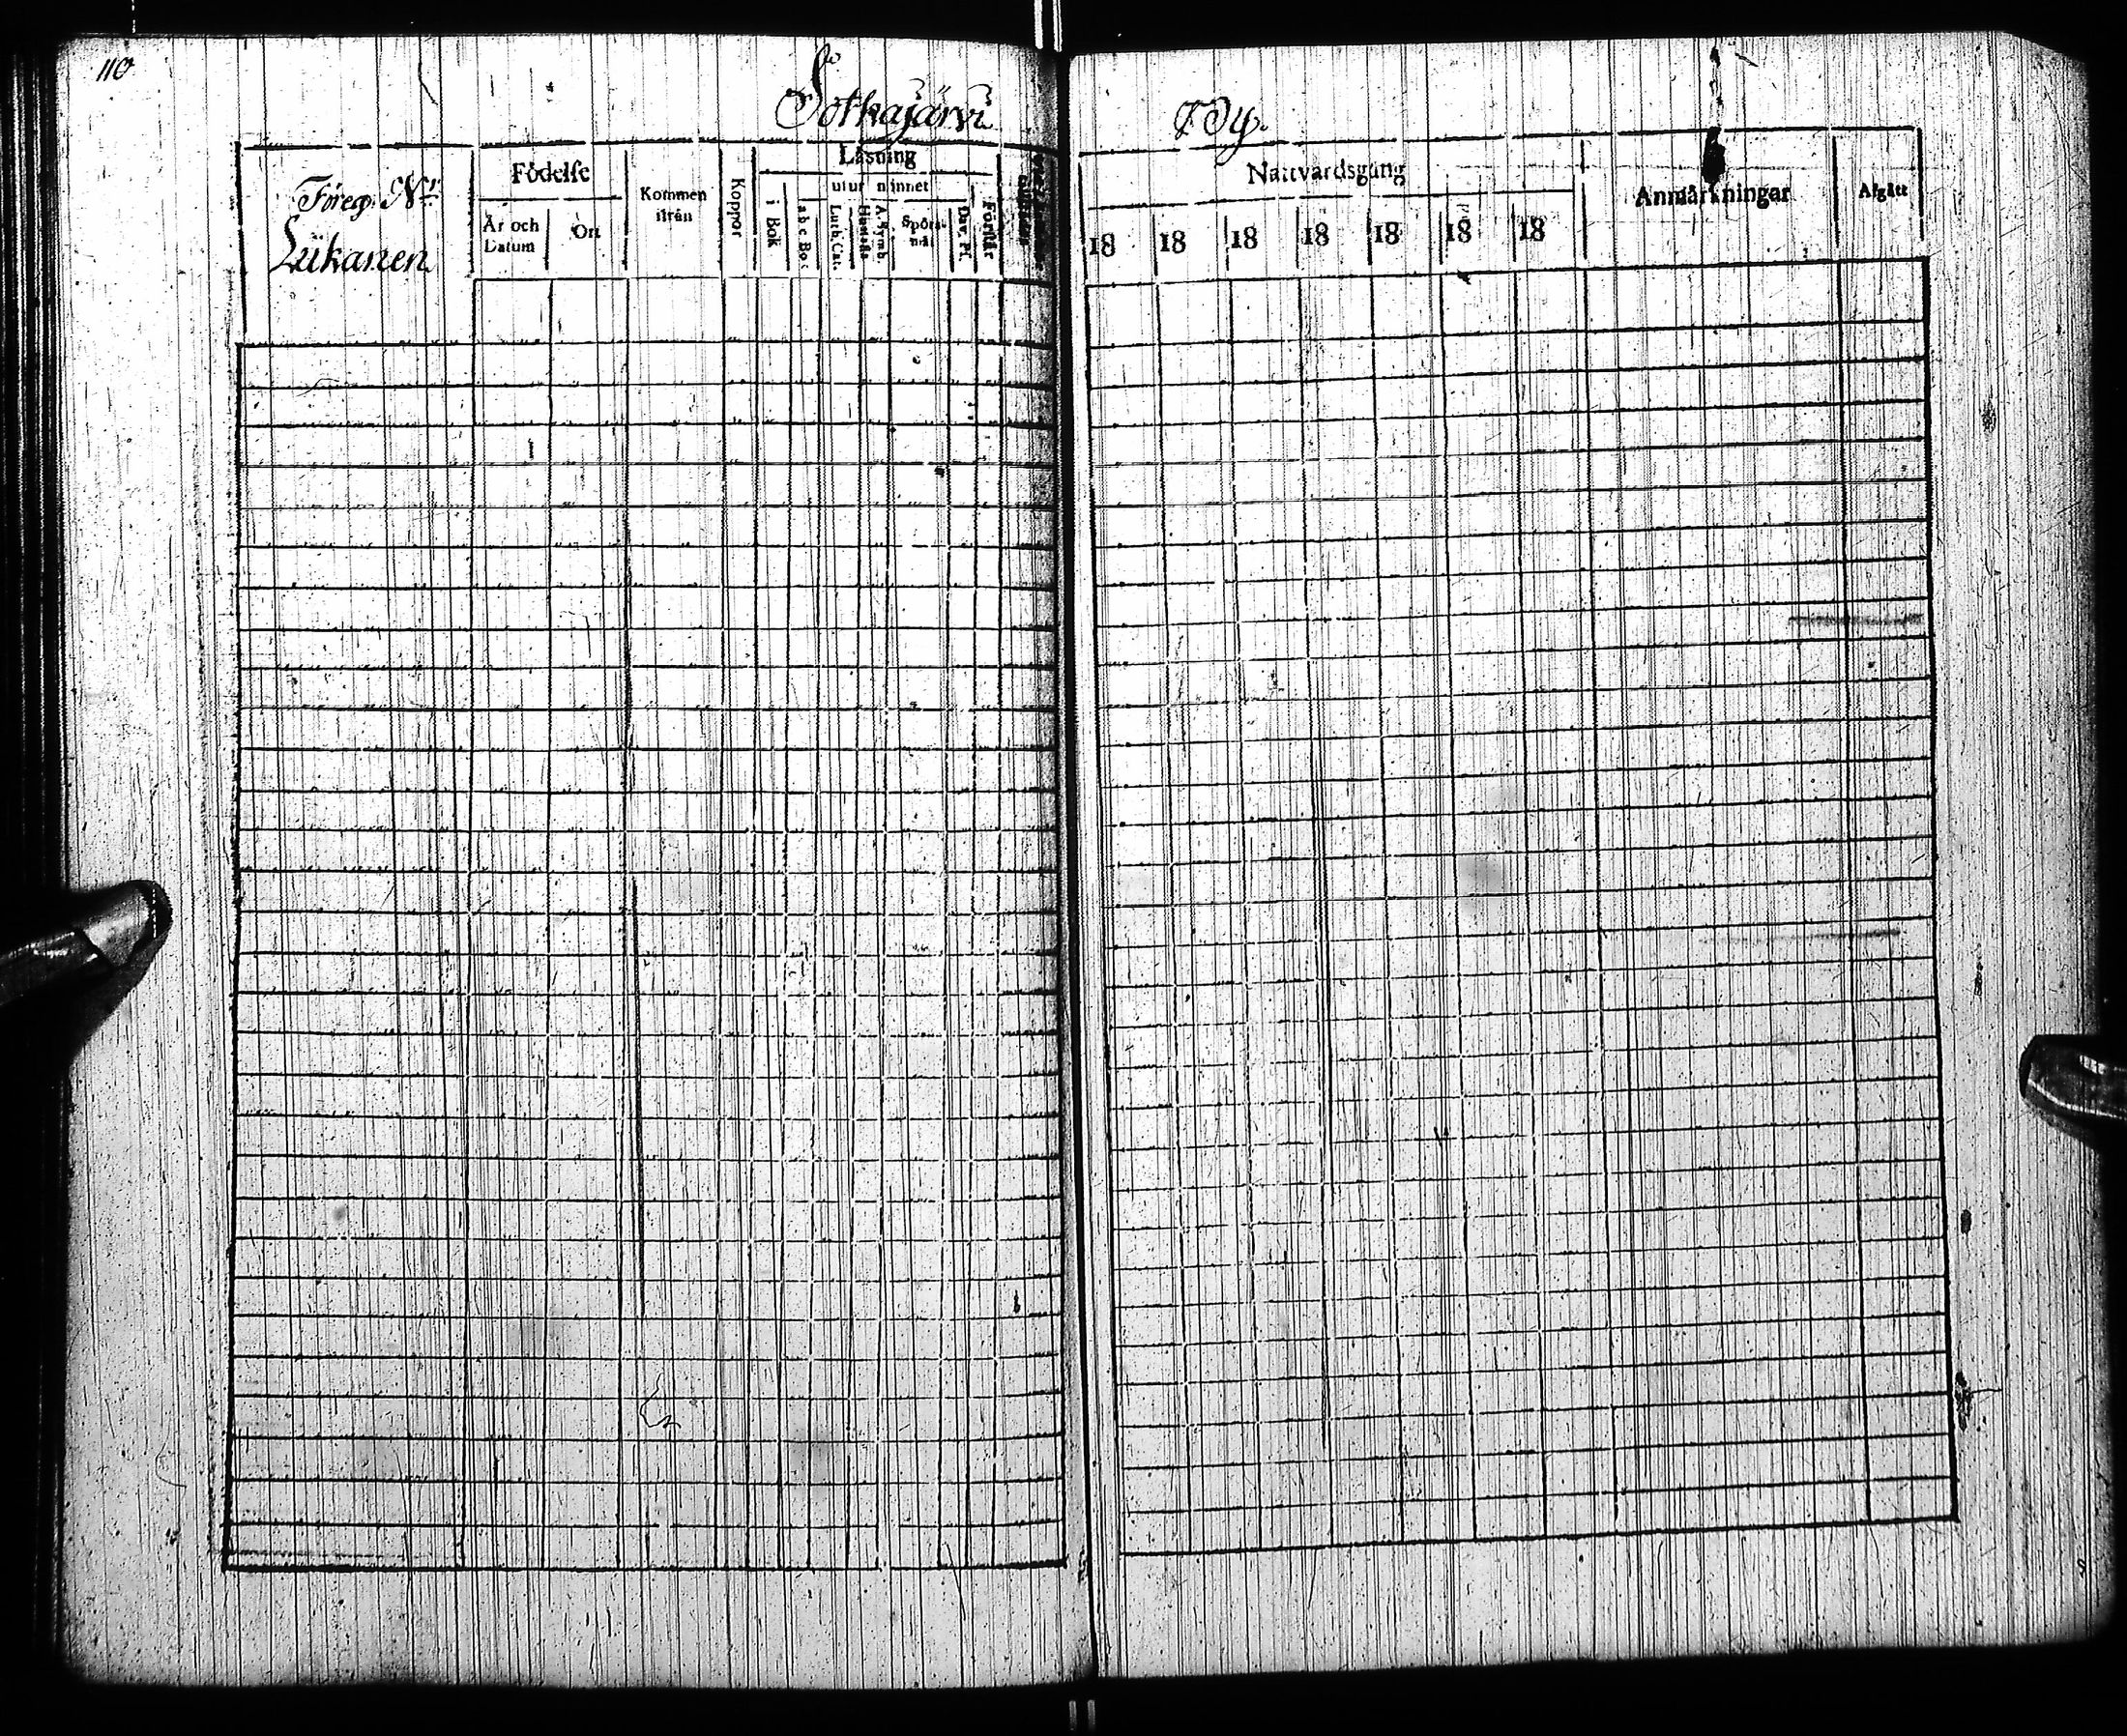 110
Sotkajärvi By.
Föreg. Nr
Lükanen
Födelse
År och Datum
Ort
Kommen ifrån
Koppor
Läsning
utur minnet
i Bok
a b c Bok
Luth. Cat.
Hustafla
A. Symb.
Spörsmål
Dav. Ps.
Förstår
Nattvardsgång
18 18 18 18 18 18 18
Anmärkningar
Afgått